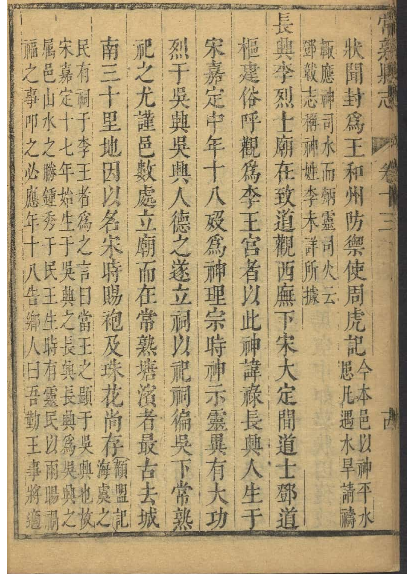 常熟縣志
卷十三
狀聞封為王和州防禦使周虎記
今本邑以神平水
患凡遇水旱請禱
輒應神司水而炳靈司火云
鄧韍志稱神姓李未詳所據
長興李烈士廟在致道觀西廡下宋大定間道士鄧道
樞建俗呼觀為李王宮者以此神諱祿長興人生于
宋嘉定中年十八歿為神理宗時神示靈異有大功
烈于吳興吳興人德之遂立祠以祀祠徧吳下常熟
祀之尤謹邑數處立廟而在常熟塘濱者最古去城
南三十里地因以名宋時賜袍及珠花尚存
顧盟記
海虞之
民有祠于李王者為之言曰當王之顯于吳興也故
宋嘉定十七年始生于吳興之長興長興為吳興之
屬邑山水之勝鍾秀于民王生時有靈民以雨暘禍
福之事叩之必應年十八告鄉人曰吾勤王事將適